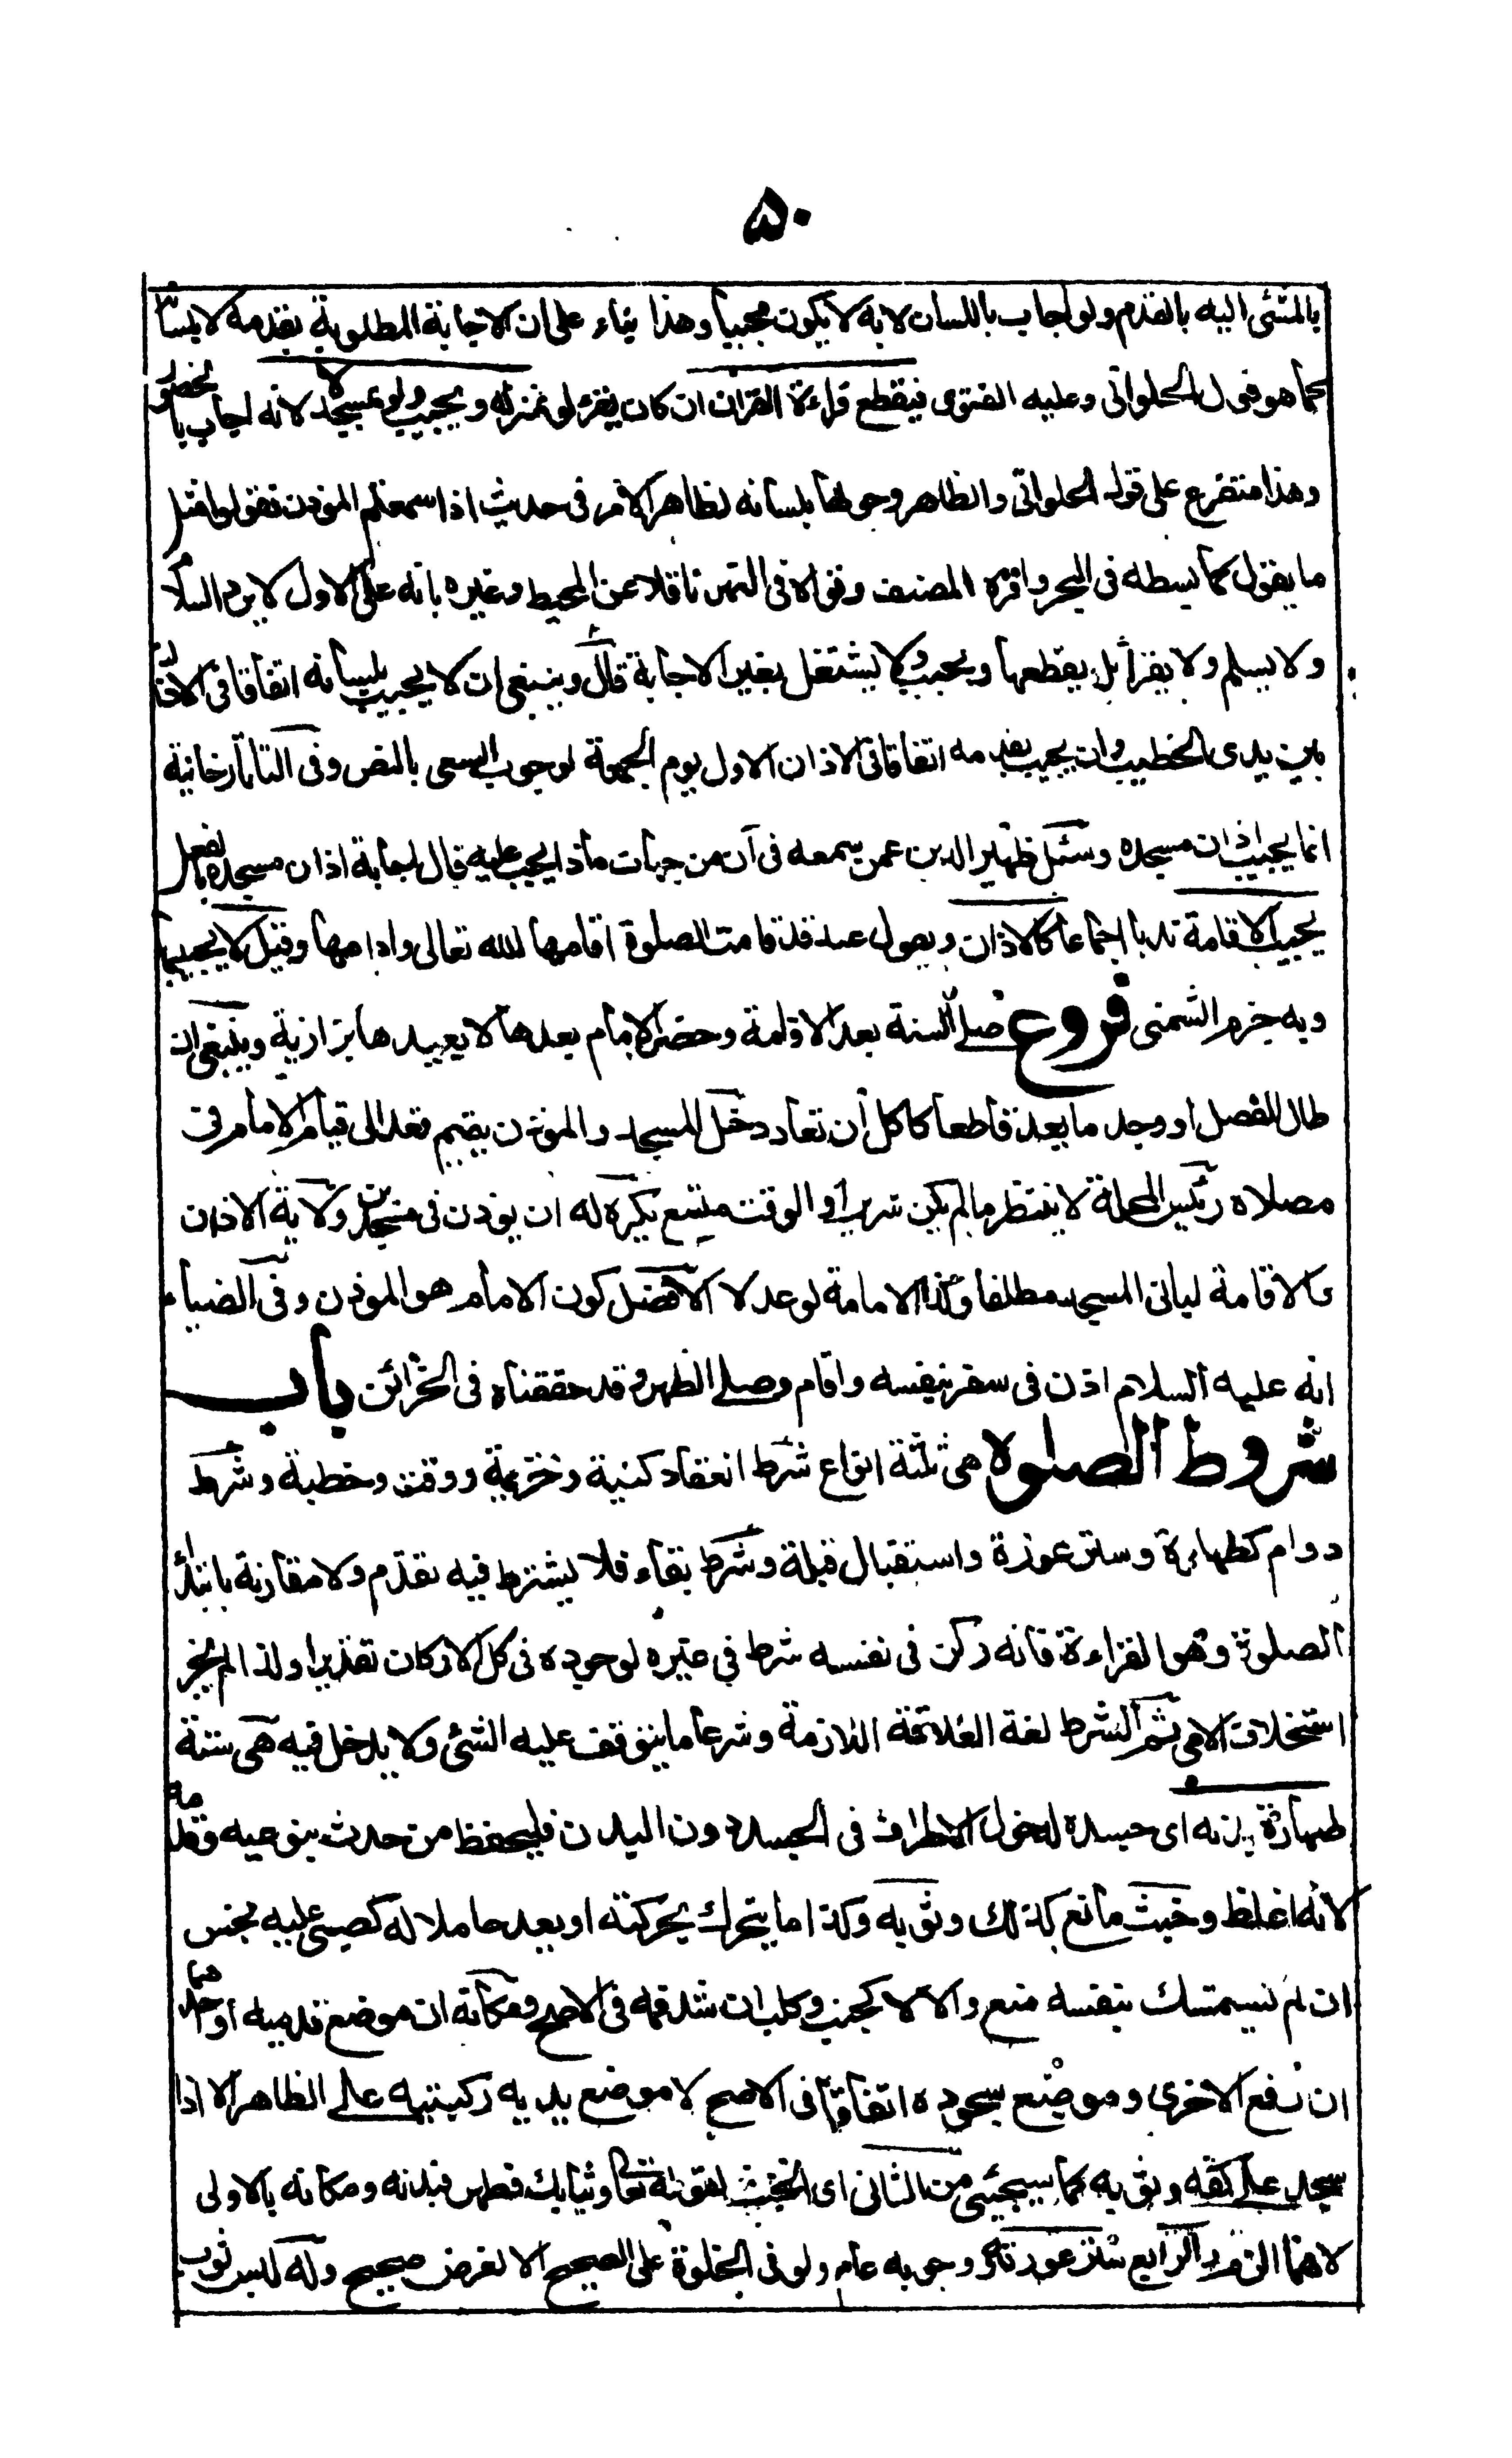 ۵۰
بالمشى اليه بالقدم ولو اجاب باللسان لا به لا يكون مجيبا وهذا بناء على ان الاجابة المطلوبة بقدمه لا بلسانه
كما هو قول الحلوانى وعليه الفتوى فيقطع قراءة القران ان كان يقرء لو بمنزله ويجيب ولو بمسجد لا لانه اجاب بالحضور
وهذا متفرع على قول الحلوانى والظاهر وجوبها بلسانه لظاهر الامر فى حديث اذا سمعتم المؤذن فقولوا مثل
ما يقول كما بسطه فى البحر واقره المصنف وقواه فى النهر ناقلا عن المحيط وغيره بانه على الاول لا يرد السلام
ولا يسلم ولا يقرأ بل يقطعها ويجيب ولا يشتغل بغير الاجابة قال وينبغى ان لا يجيب بلسانه اتفاقا فى الاذان
بين يدى الخطيب وان يجيب بقدمه اتفاقا فى الاذان الاول يوم الجمعة لوجوب السعى بالنص وفى التاتارخانية
انما يجيب اذان مسجده وسئل ظهير الدين عمن سمعه فى آن من جهات ماذا يجب عليه قال اجابة اذان مسجده بالفعل
يجيب الاقامة ندبا اجماعا كالاذان ويقول عند قد قامت الصلوة اقامها الله تعالى وادامها وقيل لا يجيبها
وبه جزم الشمنى فروع صلى السنة بعد الاقامة وحضر الامام بعدها لا يعيدها بزازية وينبغى ان
طال الفصل او وجد ما يعد قاطعا كاكل ان تعاد دخل المسجد والمؤذن يقيم قعد الى قيام الامام فى
مصلاه رئيس المحلة لا ينتظر ما لم يكن شريرا والوقت متسع يكره له ان يؤذن فى مسجدين ولاية الاذان
والاقامة لبانى المسجد مطلقا وكذا الامامة لو عدلا الافضل كون الامام هو المؤذن وفى الضياء
انه عليه السلام اذن فى سفر بنفسه واقام وصلى الظهر وقد حققناه فى الخزائن باب
شروط الصلوة هى ثلثة انواع شرط انعقاد كنية وتحريمة ووقت وخطبة وشرط
دوام كطهارة وستر عورة واستقبال قبلة وشرط بقاء فلا يشترط فيه تقدم ولا مقارنة بابتداء
الصلوة وهو القراءة فانه ركن فى نفسه شرط فى غيره لوجوده فى كل الاركان تقديرا ولذا لم يجز
استخلاف الامى ثم الشرط لغة العلامة اللازمة وشرعا ما يتوقف عليه الشئ ولا يدخل فيه هى ستة
طهارة بدنه اى جسده لدخول الاطراف فى الجسد دون البدن فليحفظ من حدث بنوعيه وقدمه
لانه اغلظ وخبث مانع كذلك وثوبه وكذا ما يتحرك بحركته او يعد حاملا له كصبى عليه نجس
ان لم يستمسك بنفسه منع والا لا كجنب وكلب ان شد فمه فى الاصح ومكانه اى موضع قدميه او احدهما
ان رفع الاخرى وموضع سجوده اتفاقا فى الاصح لا موضع يديه وركبتيه على الظاهر الا اذا
سجد على كفه وثوبه كما سيجئ من الثانى اى الخبث لقوله تعالى وثيابك فطهر فبدنه ومكانه بالاولى
لانهما الزم والرابع ستر عورته ووجوبه عام ولو فى الخلوة على الصحيح الا لغرض صحيح وله لبس ثوب